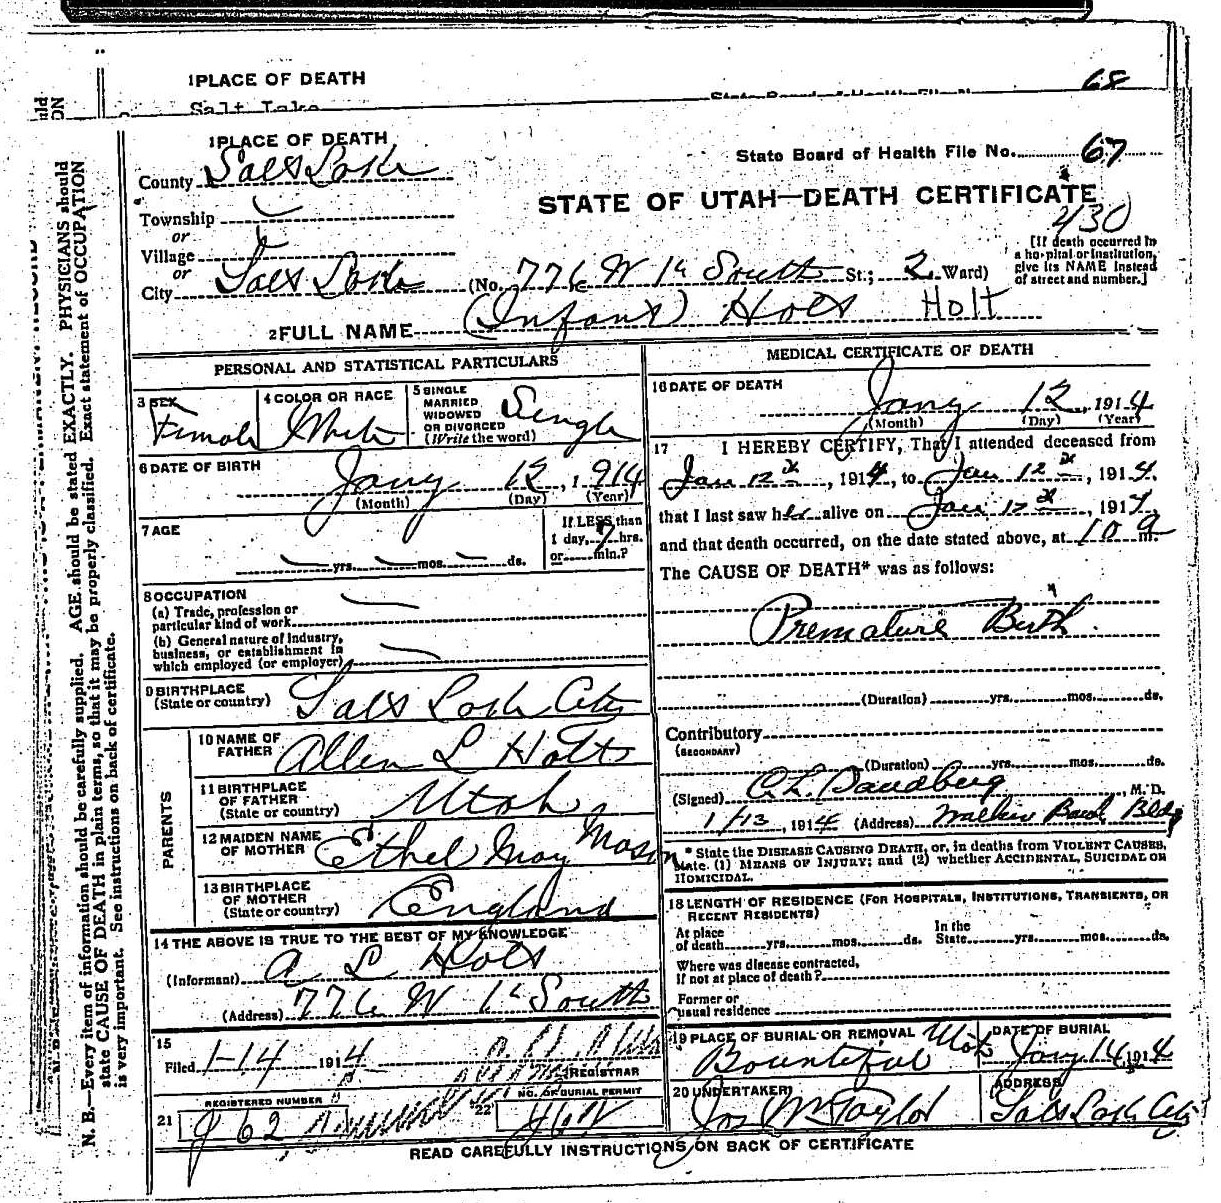 1 PLACE OF DEATH
Salt Lake
68
1 PLACE OF DEATH
County Salt Lake
State Board of Health File No. 67
STATE OF UTAH—DEATH CERTIFICATE
430
Township
or
Village
or
City Salt Lake (No. 776 W 1st South St.; 2 Ward)
[If death occurred in
a hospital or institution,
give its NAME instead
of street and number.]
2 FULL NAME (Infant) Holt Holt
PERSONAL AND STATISTICAL PARTICULARS
3 SEX Female
4 COLOR OR RACE White
5 SINGLE
MARRIED
WIDOWED
OR DIVORCED
(Write the word) Single
6 DATE OF BIRTH
Jany 12, 1914
(Month) (Day) (Year)
7 AGE
yrs. mos. ds.
If LESS than
1 day, 7 hrs.
or min.?
8 OCCUPATION
(a) Trade, profession or
particular kind of work
(b) General nature of industry,
business, or establishment in
which employed (or employer)
9 BIRTHPLACE
(State or country) Salt Lake City
PARENTS
10 NAME OF
FATHER Allen L Holt
11 BIRTHPLACE
OF FATHER
(State or country) Utah
12 MAIDEN NAME
OF MOTHER Ethel May Mason
13 BIRTHPLACE
OF MOTHER
(State or country) England
14 THE ABOVE IS TRUE TO THE BEST OF MY KNOWLEDGE
(Informant) A L Holt
(Address) 776 W 1st South
15
Filed 1-14 1914
REGISTRAR
REGISTERED NUMBER
21 J 62
NO. OF BURIAL PERMIT
22
MEDICAL CERTIFICATE OF DEATH
16 DATE OF DEATH
Jany 12, 1914
(Month) (Day) (Year)
17 I HEREBY CERTIFY, That I attended deceased from
Jan 12, 1914, to Jan 12, 1914.
that I last saw her alive on Jan 12, 1914,
and that death occurred, on the date stated above, at 10 a m.
The CAUSE OF DEATH* was as follows:
Premature Birth.
(Duration) yrs. mos. ds.
Contributory
(SECONDARY)
(Duration) yrs. mos. ds.
(Signed) C. L. Sandberg M.D.
1/13, 1914 (Address) Walker Bank Bldg
* State the DISEASE CAUSING DEATH, or, in deaths from VIOLENT CAUSES,
state (1) MEANS OF INJURY; and (2) whether ACCIDENTAL, SUICIDAL OR
HOMICIDAL.
18 LENGTH OF RESIDENCE (FOR HOSPITALS, INSTITUTIONS, TRANSIENTS, OR
RECENT RESIDENTS)
At place
of death yrs. mos. ds.
In the
State yrs. mos. ds.
Where was disease contracted,
if not at place of death?
Former or
usual residence
19 PLACE OF BURIAL OR REMOVAL
Bountiful Utah
DATE OF BURIAL
Jany 14 1914
20 UNDERTAKER
Jos Wm Taylor
ADDRESS
Salt Lake City
READ CAREFULLY INSTRUCTIONS ON BACK OF CERTIFICATE
N. B.—Every item of information should be carefully supplied. AGE should be stated EXACTLY. PHYSICIANS should
state CAUSE OF DEATH in plain terms, so that it may be properly classified. Exact statement of OCCUPATION
is very important. See instructions on back of certificate.